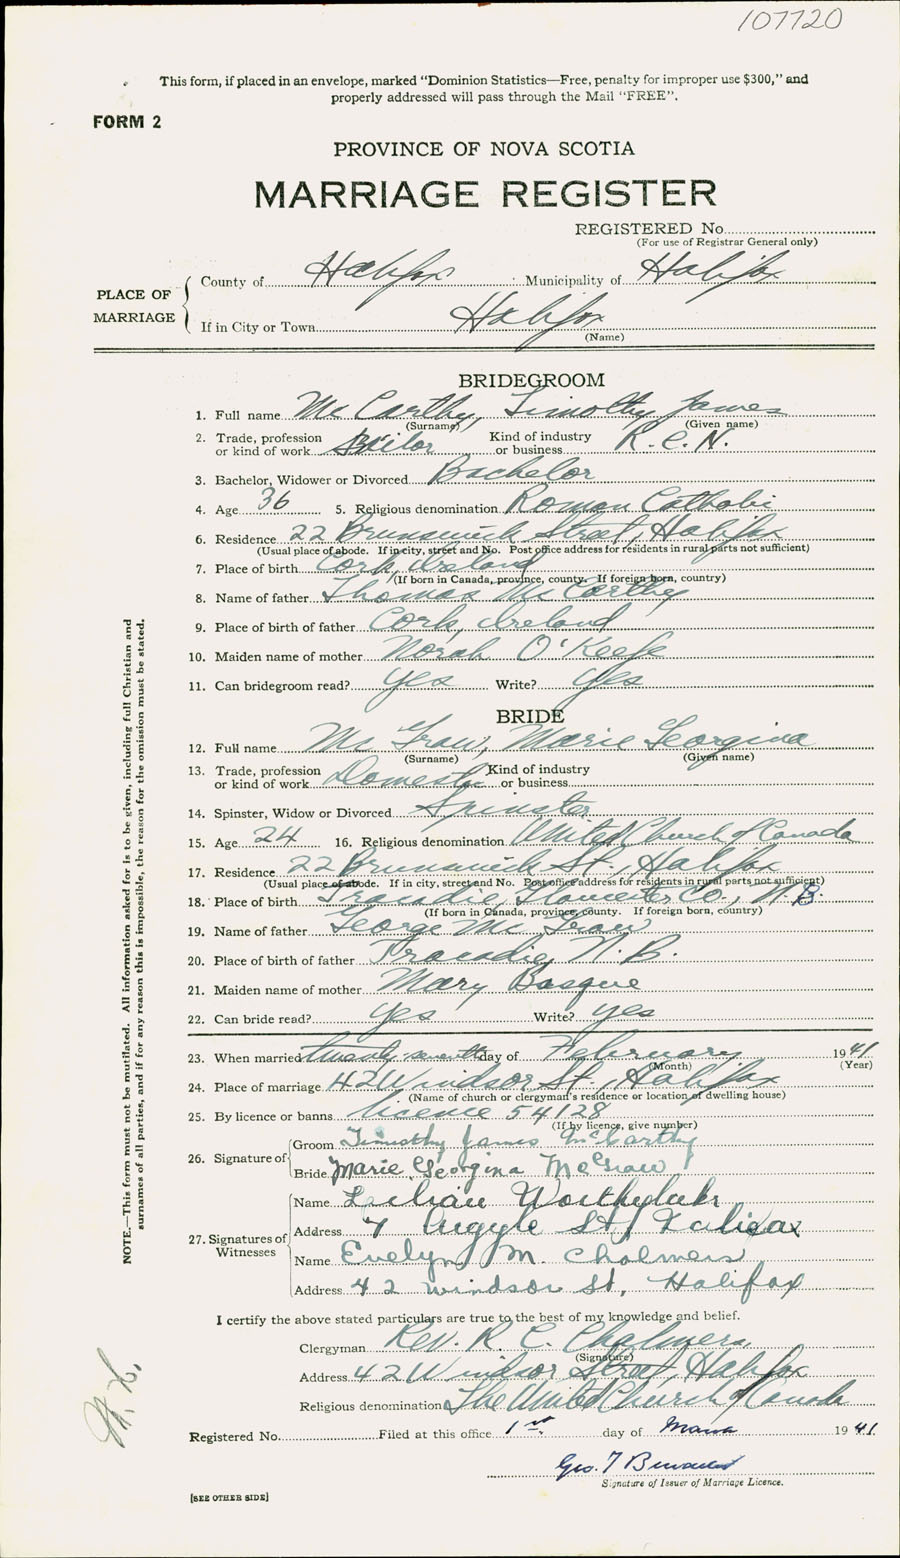 107720
This form, if placed in an envelope, marked "Dominion Statistics—Free, penalty for improper use $300," and
properly addressed will pass through the Mail "FREE".
FORM 2
PROVINCE OF NOVA SCOTIA
MARRIAGE REGISTER
REGISTERED No.
(For use of Registrar General only)
PLACE OF MARRIAGE
County of Halifax Municipality of Halifax
If in City or Town Halifax
(Name)
BRIDEGROOM
1. Full name McCarthy, Timothy James
(Surname) (Given name)
2. Trade, profession or kind of work Sailor Kind of industry or business R.C.N.
3. Bachelor, Widower or Divorced Bachelor
4. Age 36 5. Religious denomination Roman Catholic
6. Residence 22 Brunswick Street, Halifax
(Usual place of abode. If in city, street and No. Post office address for residents in rural parts not sufficient)
7. Place of birth Cork, Ireland
(If born in Canada, province, county. If foreign born, country)
8. Name of father Thomas McCarthy
9. Place of birth of father Cork, Ireland
10. Maiden name of mother Norah O'Keefe
11. Can bridegroom read? yes Write? yes
BRIDE
12. Full name McGraw, Marie Georgina
(Surname) (Given name)
13. Trade, profession or kind of work Domestic Kind of industry or business
14. Spinster, Widow or Divorced Spinster
15. Age 24 16. Religious denomination United Church of Canada
17. Residence 22 Brunswick St., Halifax
(Usual place of abode. If in city, street and No. Post office address for residents in rural parts not sufficient)
18. Place of birth Tracadie, Gloucester Co., N.B.
(If born in Canada, province, county. If foreign born, country)
19. Name of father George McGraw
20. Place of birth of father Tracadie, N.B.
21. Maiden name of mother Mary Basque
22. Can bride read? yes Write? yes
23. When married twenty seventh day of February 1941
(Month) (Year)
24. Place of marriage 42 Windsor St., Halifax
(Name of church or clergyman's residence or location of dwelling house)
25. By licence or banns licence 54128
(If by licence, give number)
26. Signature of
Groom Timothy James McCarthy
Bride Marie Georgina McGraw
27. Signatures of Witnesses
Name Lilian
Address 7 Argyle St, Halifax
Name Evelyn M. Chalmers
Address 42 Windsor St, Halifax
I certify the above stated particulars are true to the best of my knowledge and belief.
Clergyman Rev. R. C. Chalmers
(Signature)
Address 42 Windsor Street, Halifax
Religious denomination The United Church of Canada
Registered No. Filed at this office 1 day of 1941
Geo. T
Signature of Issuer of Marriage Licence.
[SEE OTHER SIDE]
NOTE.—This form must not be mutilated. All information asked for is to be given, including full Christian and
surnames of all parties, and if for any reason this is impossible, the reason for the omission must be stated.